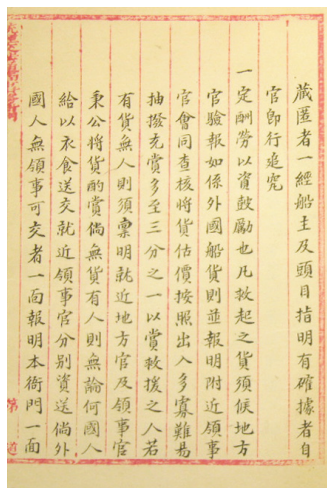 藏匿者一經船主及頭目指明有確據者自
官即行追究
一定酬勞以資鼓勵也凡救起之貨須候地方
官驗報如係外國船貨則並報明附近領事
官會同查核將貨估價按照出入多寡難易
抽撥充賞多至三分之一以賞救援之人若
有貨無人則須稟明就近地方官及領事官
秉公將貨酌賞倘無貨有人則無論何國人
給以衣食送交就近領事官分别資送倘外
國人無領事可交者一面報明本衙門一面